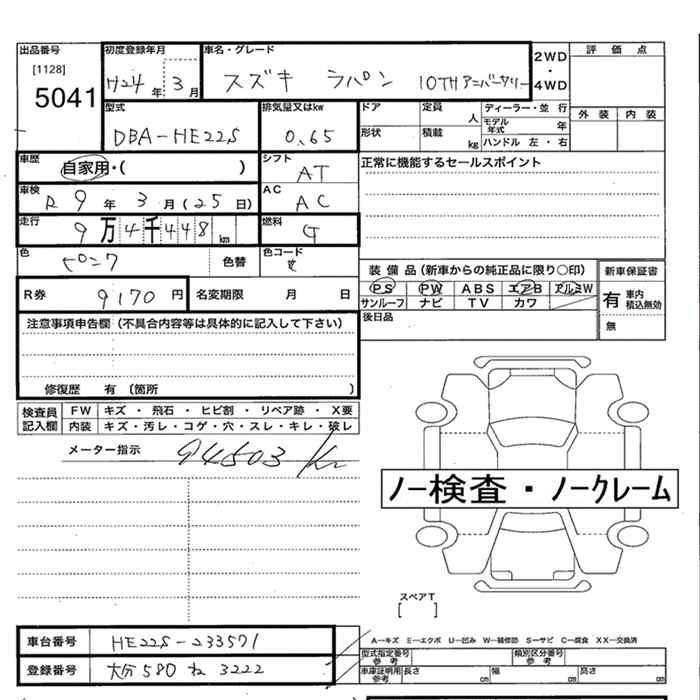 出品番号
[1128]
5041
初度登録年月
H24 年 3 月
車名・グレード
スズキ ラパン 10TH アニバーサリー
2WD
・
4WD
評価点
外装 内装
型式
DBA-HE22S
排気量又はkw
0.65
ドア
定員 人
形状
積載 kg
ディーラー・並行
モデル年式 年
ハンドル 左・右
車歴
自家用・( )
シフト
AT
正常に機能するセールスポイント
車検
R 9 年 3 月 (25 日)
AC
AC
走行
9 万 4 千 4 4 8 km
燃料
G
色
ピンク
色替
色コード
装備品 (新車からの純正品に限り○印)
PS PW ABS エアB アルミW
サンルーフ ナビ TV カワ
新車保証書
有 車内積込無効
無
R券
9170 円
名変期限 月 日
後日品
注意事項申告欄 (不具合内容等は具体的に記入して下さい)
修復歴 有 〔箇所 〕
検査員記入欄
FW キズ・飛石・ヒビ割・リペア跡・X要
内装 キズ・汚レ・コゲ・穴・スレ・キレ・破レ
メーター指示 94503 km
ノー検査・ノークレーム
スペアT
[ ]
車台番号
HE22S-233571
登録番号
大分 580 ね 3222
A―キズ E―エクボ U―凹み W―補修跡 S―サビ C―腐食 XX―交換済
型式指定番号 参考
類別区分番号 参考
車庫証明用 参考
長さ cm 幅 cm 高さ cm